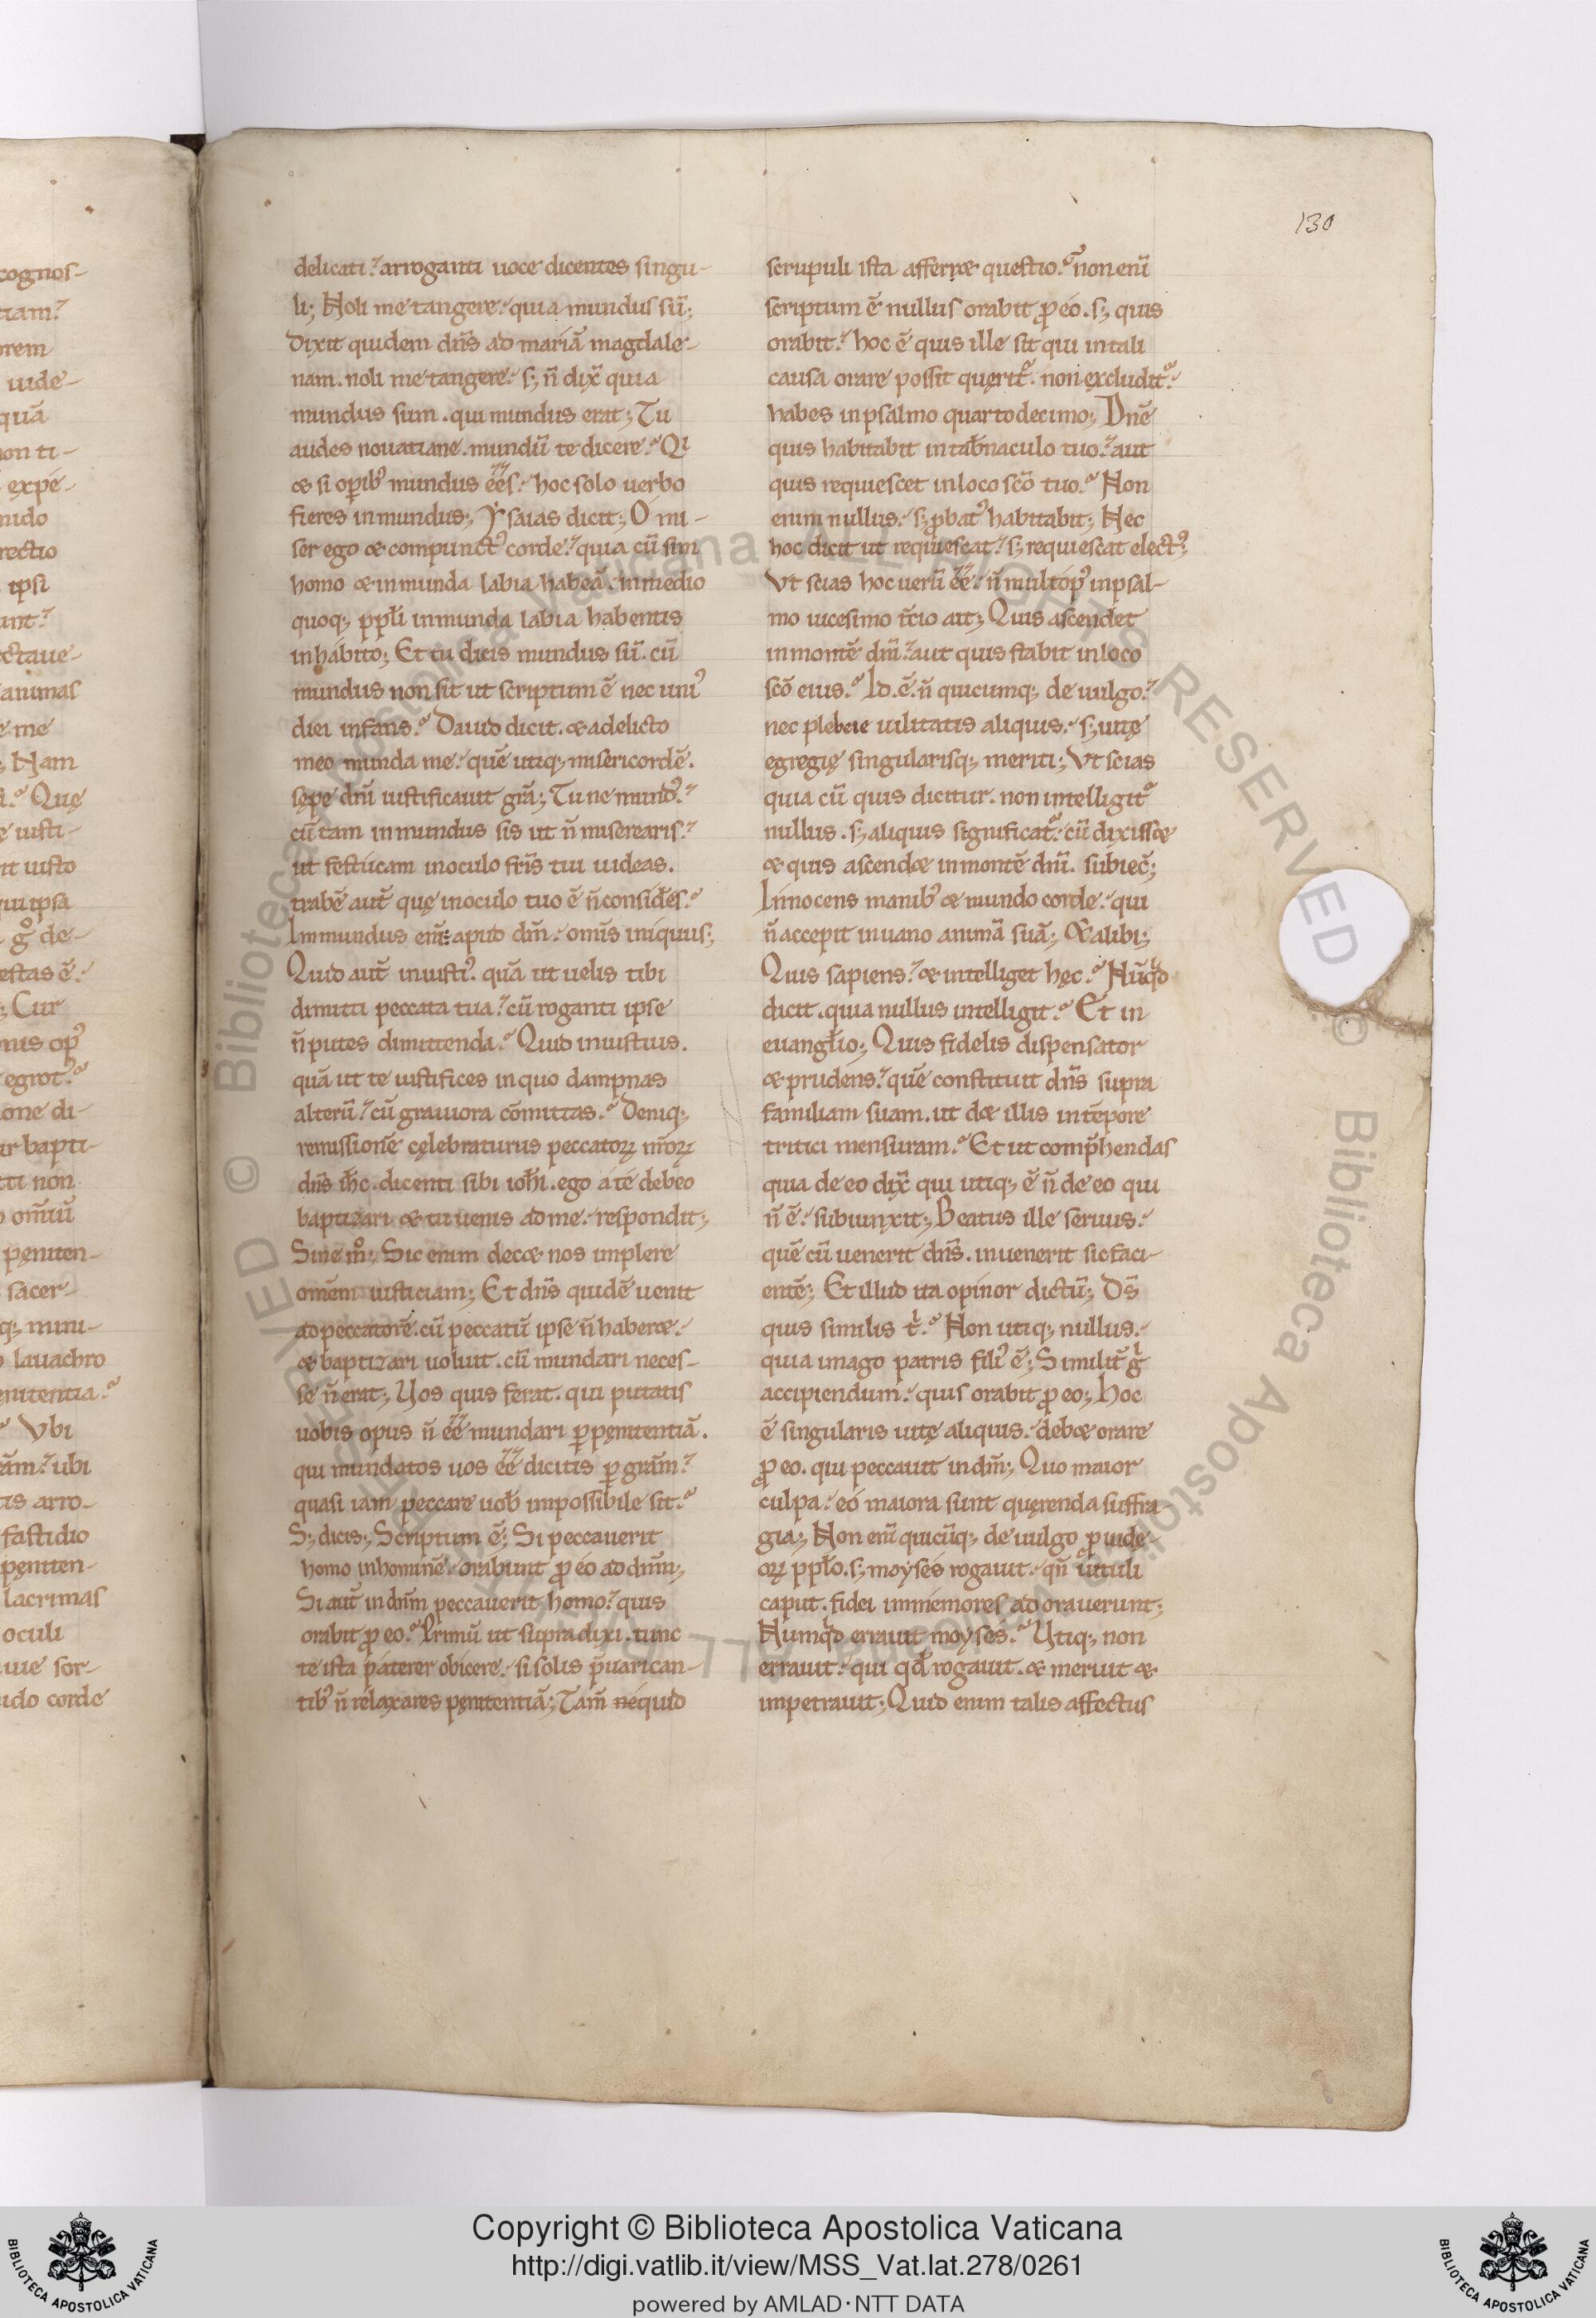 130
cognos-
tiam?
orem
uide-
quā
non ti-
expe-
mido
rectio
ipsi
unt?
ctaue-
animas
e me
; Nam
Quę
e iusti-
it iusto
qui ipsa
g° de-
estas ē.
; Cur
nis op᷒
egrot᷒
one di-
ur bapti-
ti non
omniū
pęniten-
sacer-
q; mini-
lauachro
enitentia.
Vbi
ubi
tis arro-
fastidio
pęniten-
lacrimas
oculi
sor-
ido corde
delicati? arroganti uoce dicentes singu-
li; Noli me tangere. quia mundus sū;
Dixit quidem dn̄s ad mariā magdale-
nam. noli me tangere. s; n̄ dix̄ quia
mundus sum. qui mundus erat; Tu
audes nouatiane. mundū te dicere. Qi
& si opib᷒ mundus ēes. hoc solo uerbo
fieres inmundus; Ysaias dicit; O mi-
ser ego & compunct᷒ corde? quia cū sim
homo & inmunda labia habeā. in medio
quoq; ppl̄i inmunda labia habentis
inhabito; Et tu dicis mundus sū. cū
mundus non sit ut scriptum ē nec uni᷒
diei infans. Dauid dicit. & a delicto
meo munda me. quē utiq; misericordē.
sępe dn̄i iustificauit gr̄a; Tu ne mund᷒?
cū tam inmundus sis ut n̄ miserearis?
ut festucam in oculo fr̄is tui uideas.
trabē aut̄ quę in oculo tuo ē n̄ consideS.
Inmundus enī apud dm̄. omīs iniquus;
Quid aut̄ iniusti᷒. quā ut uelis tibi
dimitti peccata tua? cū roganti ipse
n̄ putes dimittenda. Quid iniustius.
quā ut te iustifices in quo dampnas
alterū? cū grauiora cōmittas. Deniq;
remissionē cęlebraturus peccatoꝝ nr̄oꝝ
dn̄s ih̄c. dicenti sibi ioh̄i. ego a te debeo
baptizari & tu uenis ad me. respondit;
Sine m°; Sic enim dec& nos implere
omēm iusticiam; Et dn̄s quidē uenit
ad peccatorē. cū peccatū ipse n̄ haber&.
& baptizari uoluit. cū mundari neces-
se n̄ erat; Uos quis ferat. qui putatis
uobis opus n̄ ēe mundari ꝑ pęnitentiā.
qui mundatos uos ēe dicitis ꝑ gr̄am?
quasi iam peccare uob̄ impossibile sit.
S; dicis; Scriptum ē; Si peccauerit
homo in hominē. orabunt ꝓ eo ad dn̄m;
Si aut̄ in dn̄m peccauerit homo? quis
orabit ꝓ eo. Primū ut supra dixi. tunc
te ista paterer obicere. si solis p̄uarican-
tib᷒ n̄ relaxares pęnitentiā; Tam̄ nequid
scrupuli ista afferr& questio. non enī
scriptum ē nullus orabit ꝓ eo. s; quis
orabit. hoc ē quis ille sit qui in tali
causa orare possit quęrit᷒. non excludit᷒.
habes in psalmo quartodecimo; Dn̄e
quis habitabit in tab̄naculo tuo? aut
quis requiescet in loco scō tuo. Non
enim nullus. s; ꝓbat᷒ habitabit; Nec
hoc dicit ut requiescat? s; requiescat elect᷒;
Vt scias hoc uerū ēe. n̄ multop᷒ in psal-
mo uicesimo t̄cio ait; Quis ascendet
in montē dn̄i? aut quis stabit in loco
scō eius. Id. ē. n̄ quicumq; de uulgo?
nec plebeie uilitatis aliquis. s; uitę
egregię singularisq; meriti; Vt scias
quia cū quis dicitur. non intelligit᷒
nullus. s; aliquis significat᷒. cū dixiss&
& quis ascend& in montē dn̄i. subiec̄;
Innocens manib᷒ & mundo corde. qui
n̄ accepit in uano animā suā; & alibi;
Quis sapiens? & intelliget hęc. Nūqd
dicit. quia nullus intelligit. Et in
euangl̄io; Quis fidelis dispensator
& prudens? quē constituit dn̄s supra
familiam suam. ut d& illis in tēpore
tritici mensuram. Et ut comp̄hendas
quia de eo dix̄ qui utiq; ē n̄ de eo qui
n̄ ē. subiunxit; Beatus ille seruus.
quē cū uenerit dn̄s. inuenerit sic faci-
entē; Et illud ita opinor dictū; Ds̄
quis similis t̄. Non utiq; nullus.
quia imago patris fili᷒ ē; Similit̄ ḡ
accipiendum. quis orabit ꝓ eo; hoc
ē singularis uitę aliquis. deb& orare
ꝓ eo. qui peccauit in dm̄; Quo maior
culpa. eo maiora sunt quęrenda suffra-
gia; Non enī quicūq; de uulgo ꝓ iudę-
oꝝ ppl̄o. s; moyses rogauit. qn̄ uituli
caput. fidei inmemores adorauerunt;
Numqd errauit moyses. Utiq; non
errauit. qui qd̄ rogauit. & meruit &
impetrauit; Quid enim talis affectus
© Biblioteca Apostolica Vaticana ALL RIGHTS RESERVED
© Biblioteca Apostolica Vaticana ALL RIGHTS RESERVED
Copyright © Biblioteca Apostolica Vaticana
http://digi.vatlib.it/view/MSS_Vat.lat.278/0261
powered by AMLAD·NTT DATA
BIBLIOTECA APOSTOLICA VATICANA
BIBLIOTECA APOSTOLICA VATICANA